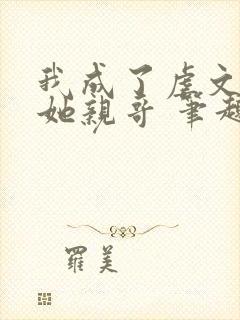 我成了虐文
她亲哥 笔趣
羅美